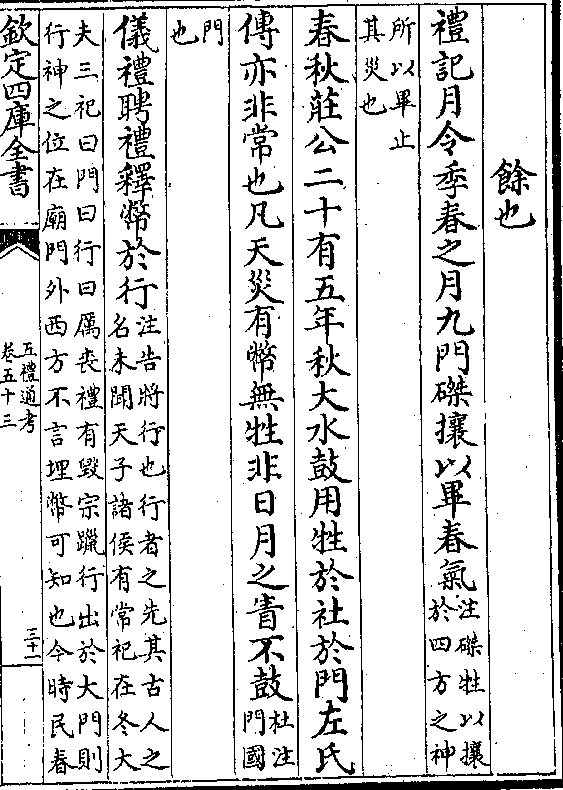 餘也
禮記月令季春之月九門磔攘以畢春氣注磔牲以攘
於四方之神
所以畢止
其災也
春秋莊公二十有五年秋大水鼓用牲於社於門左氏
傳亦非常也凡天災有幣無牲非日月之眚不鼓杜注
門國
門
也
儀禮聘禮釋幣於行注告將行也行者之先其古人之
名未聞天子諸侯有常祀在冬大
夫三祀曰門曰行曰厲喪禮有毀宗躐行出於大門則
行神之位在廟門外西方不言埋幣可知也今時民春
欽定四庫全書
五禮通考
卷五十三
三十一